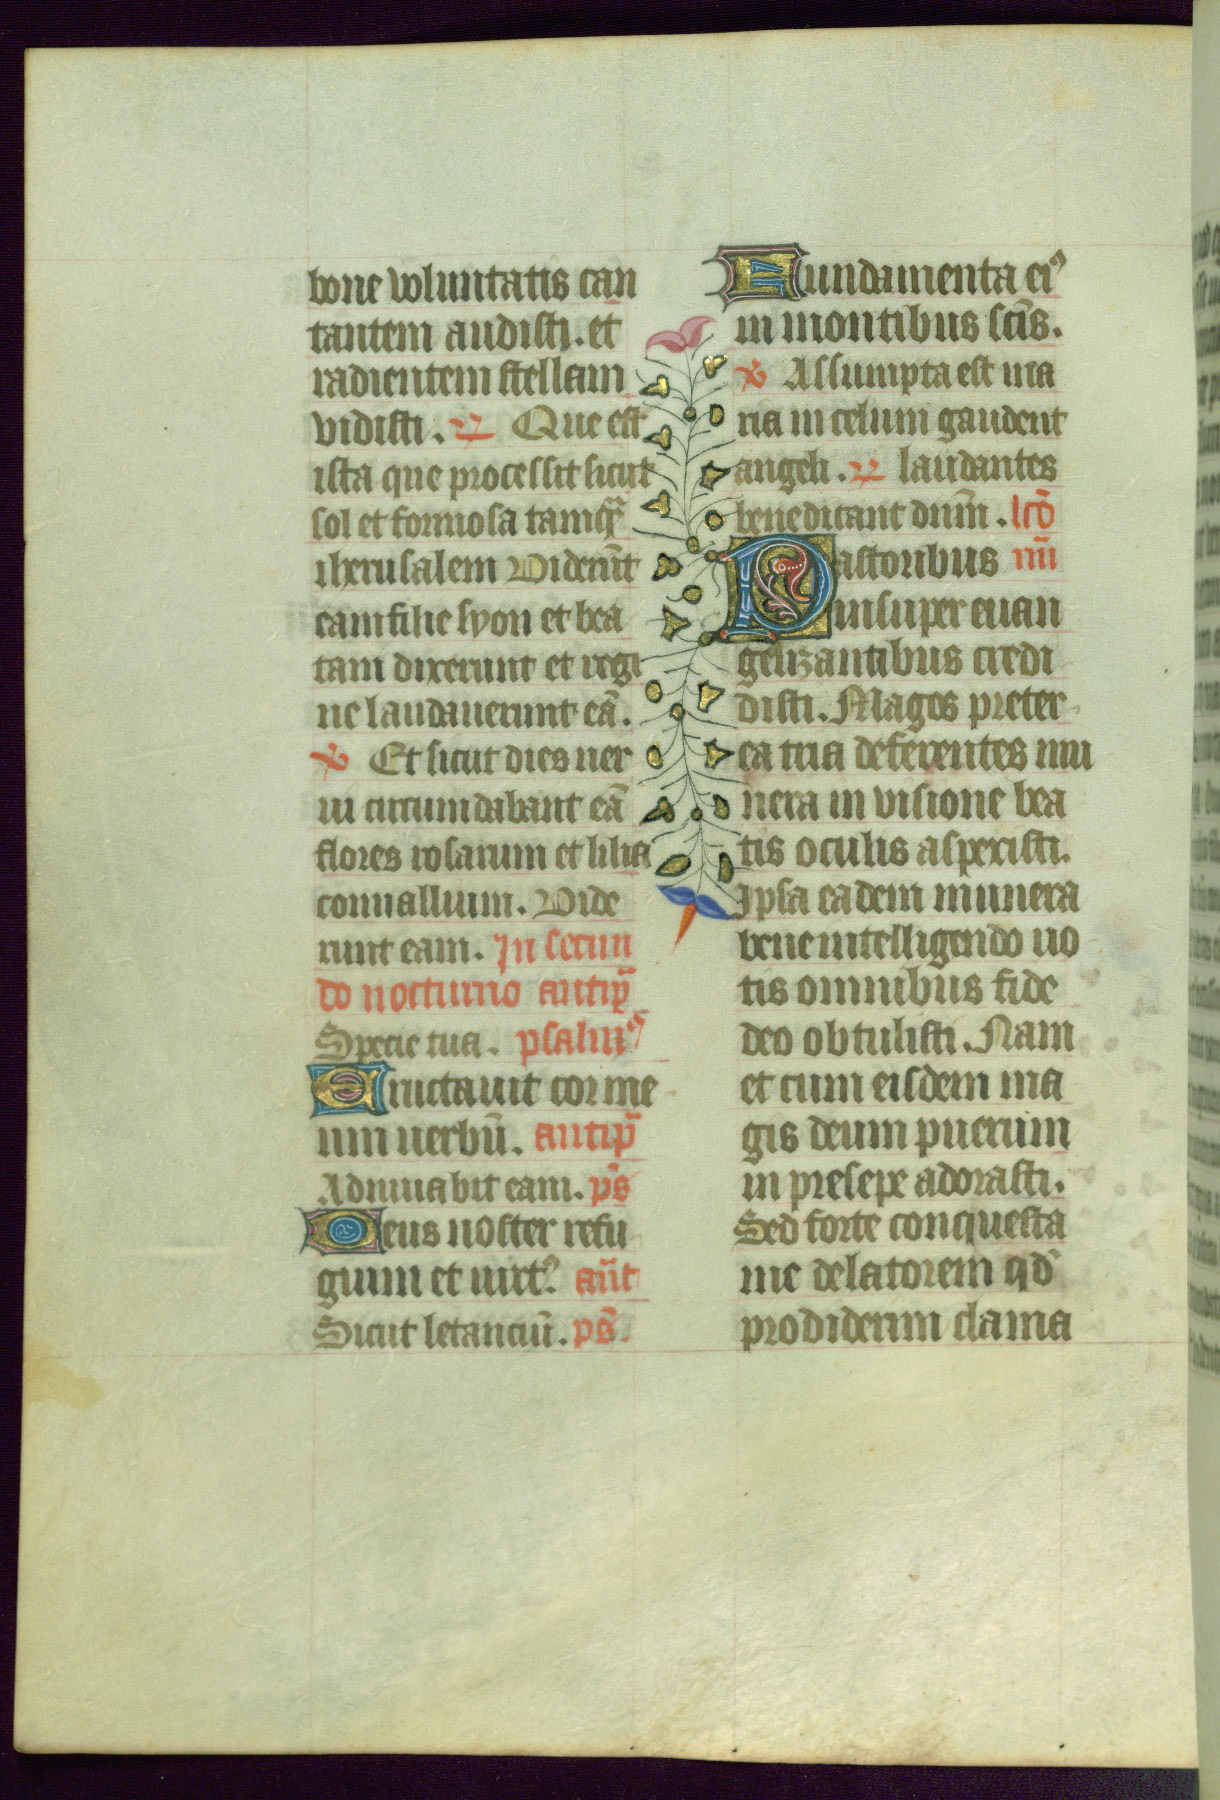 bone voluntatis can
tantem audisti. et
radientem stellam
vidisti. Que est
ista que processit sicut
sol et formosa tamq̃
iherusalem Viderũt
eam filie syon et bea
tam dixerunt et regi
ne laudauerunt eã.
Et sicut dies ver
ni circumdabant eã
flores rosarum et lilia
conuallium. Vide
runt eam. In secun
do nocturno antiph̃
Specie tua. psalmꝰ
Eructauit cor me
um uerbũ. antiph̃
Adiuuabit eam. pš
Deus noster refu
gium et uirtꝰ añt
Sicut letanciũ. pš.
Fundamenta eiꝰ
in montibus sc̃is.
Assumpta est ma
ria in celum gaudent
angeli. laudantes
benedicant dnm̃. lc̃o
Pastoribus iiii
insuper euan
gelizantibus credi
disti. Magos preter
ea tria deferentes mu
nera in visione bea
tis oculis aspexisti.
Ipsa eadem munera
bene intelligendo uo
tis omnibus fide
deo obtulisti. Nam
et cum eisdem ma
gis deum puerum
in presepe adorasti.
Sed forte conquesta
me delatorem qd̃
prodiderim clama